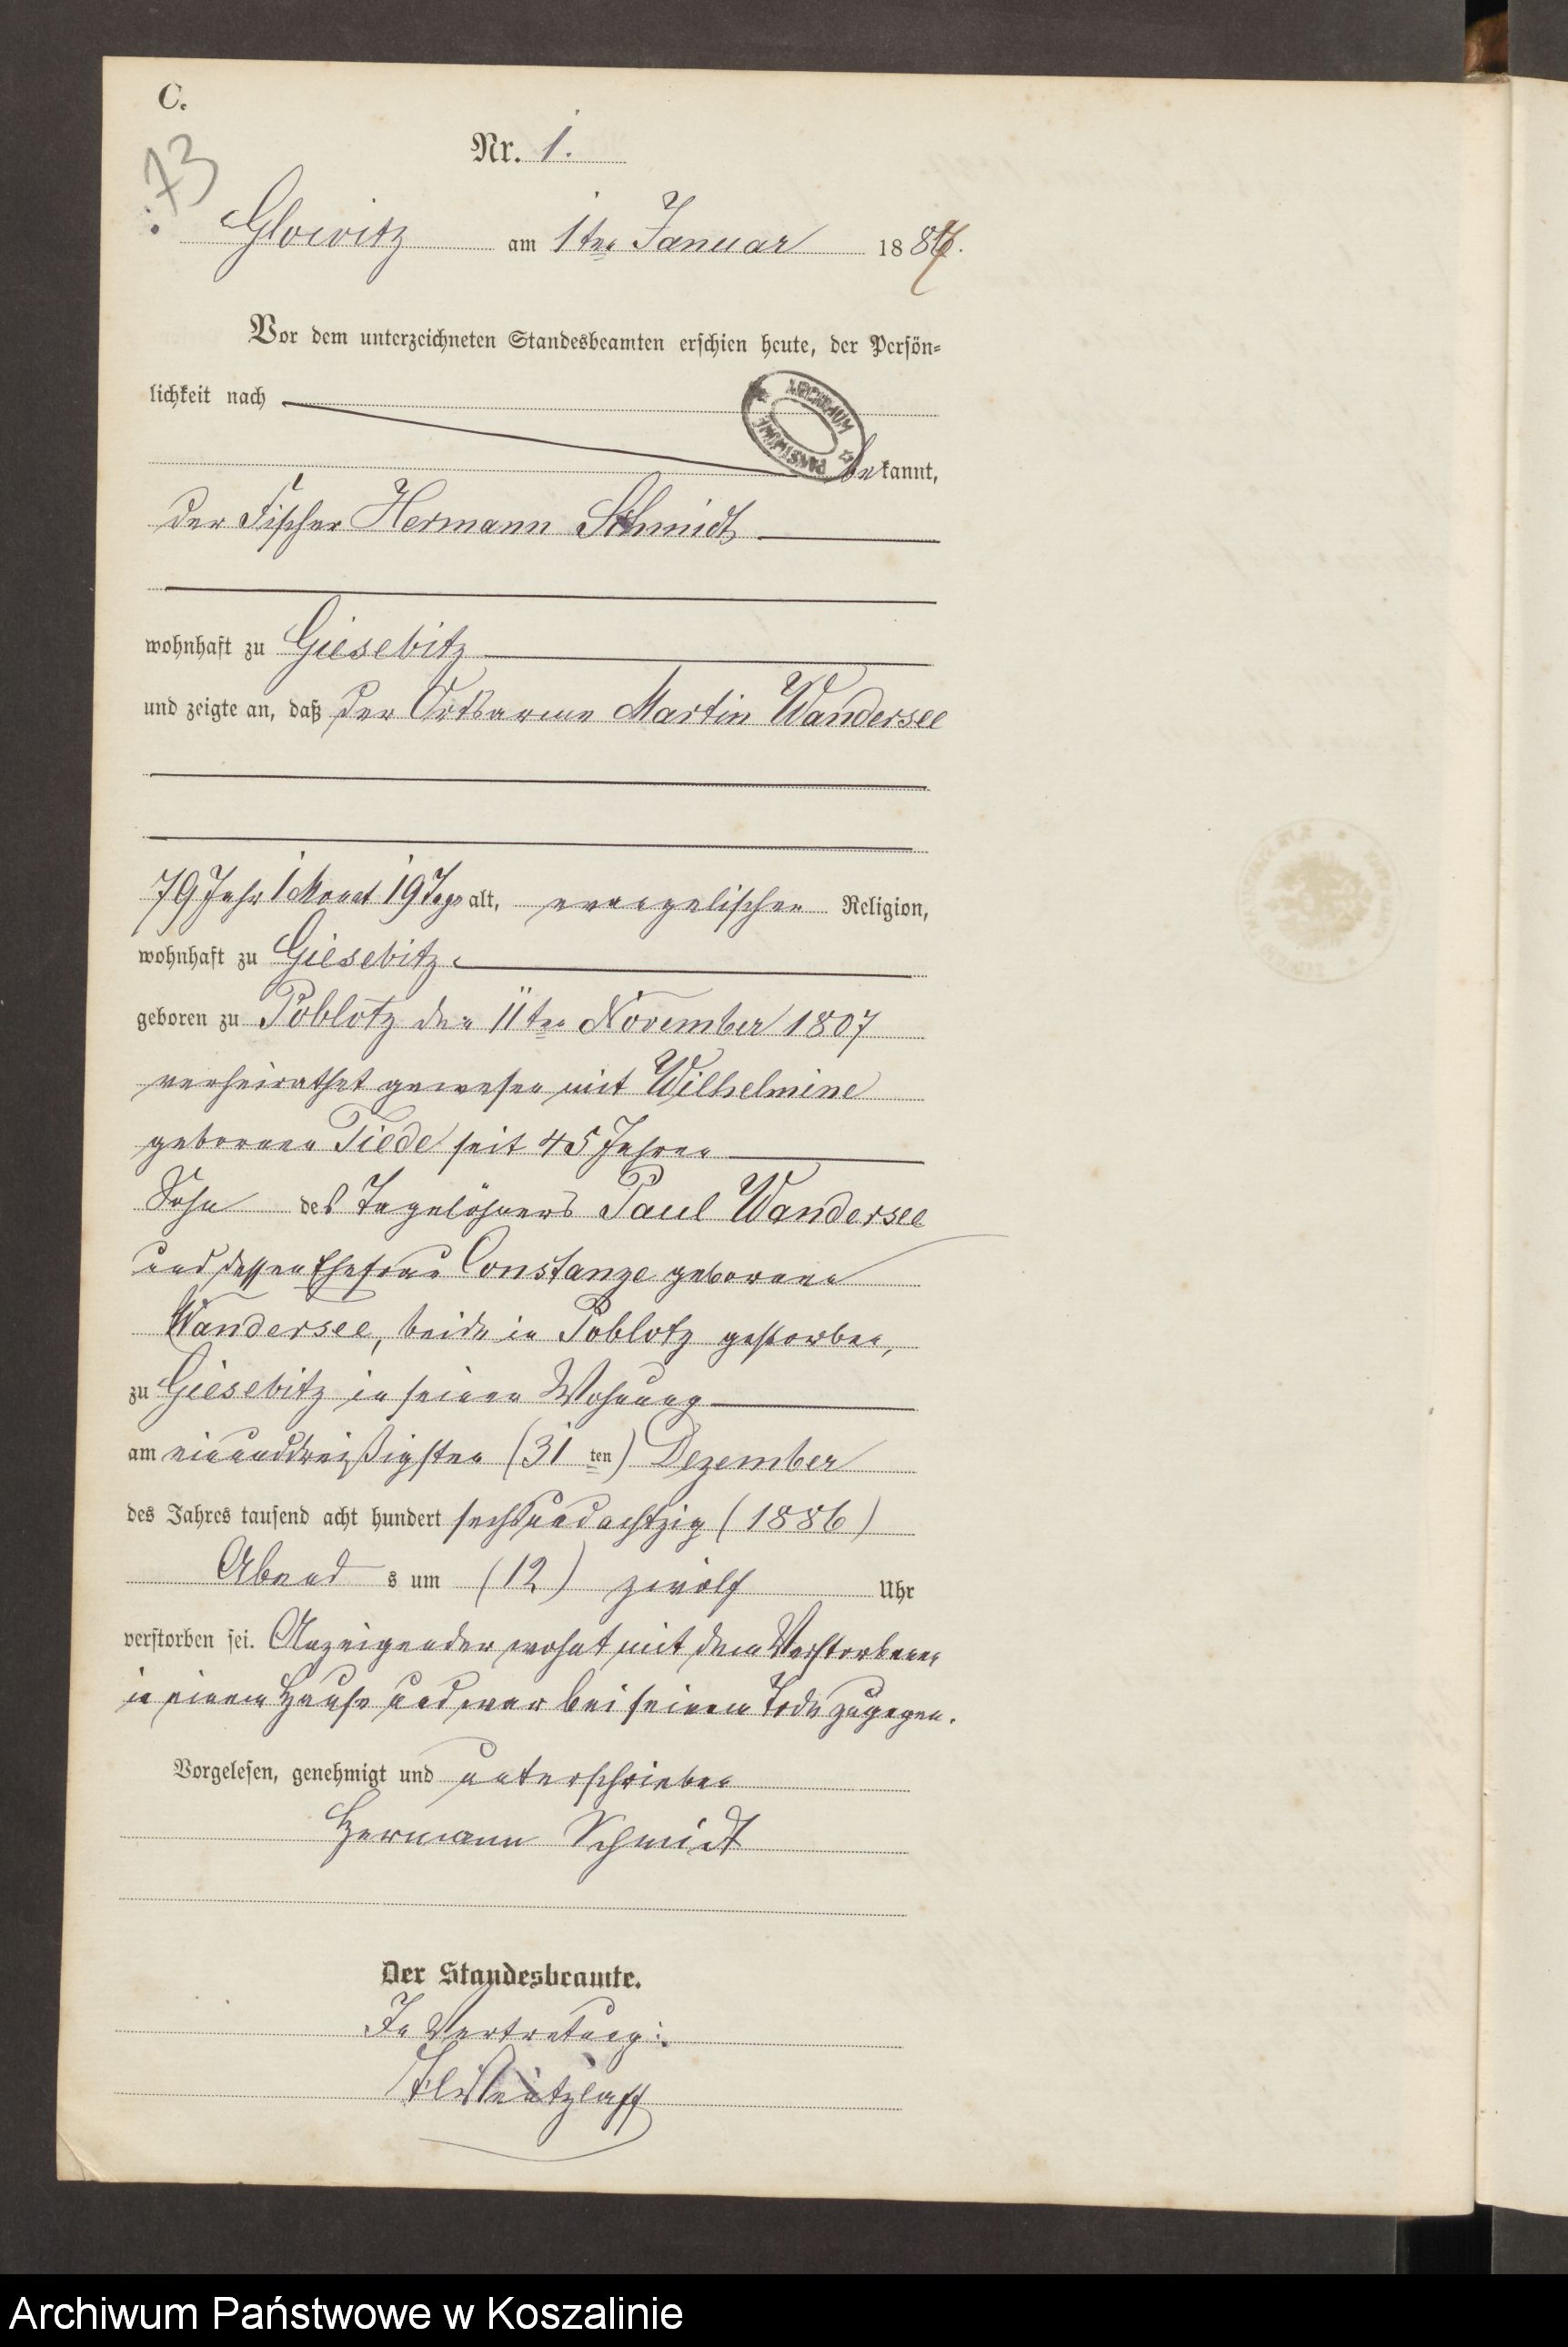 C.
73
Nr. 1.
Glowitz am 1ten Januar 1887.
Vor dem unterzeichneten Standesbeamten erschien heute, der Persön=
lichkeit nach
bekannt,
der Fischer Hermann Schmidt
wohnhaft zu Giesebitz
und zeigte an, daß der Ortsarme Martin Wandersee
79 Jahr 1 Monat 19 Tage alt, evangelischer Religion,
wohnhaft zu Giesebitz.
geboren zu Poblotz den 11ten November 1807
verheirathet gewesen mit Wilhelmine
geborenen Tiede seit 45 Jahren
Sohn des Tagelöhners Paul Wandersee
und dessen Ehefrau Constanze geborenen
Wandersee, beide in Poblotz gestorben,
zu Giesebitz in seiner Wohnung
am einunddreißigsten (31 ten) Dezember
des Jahres tausend acht hundert sechsundachtzig (1886)
Abend s um (12) zwölf Uhr
verstorben sei. Anzeigender wohnt mit dem Verstorbenen
in einem Hause und war bei seinem Tode zugegen.
Vorgelesen, genehmigt und unterschrieben
Hermann Schmidt
Der Standesbeamte.
In Vertretung:
ARCHIWUM PAŃSTWOWE
Archiwum Państwowe w Koszalinie